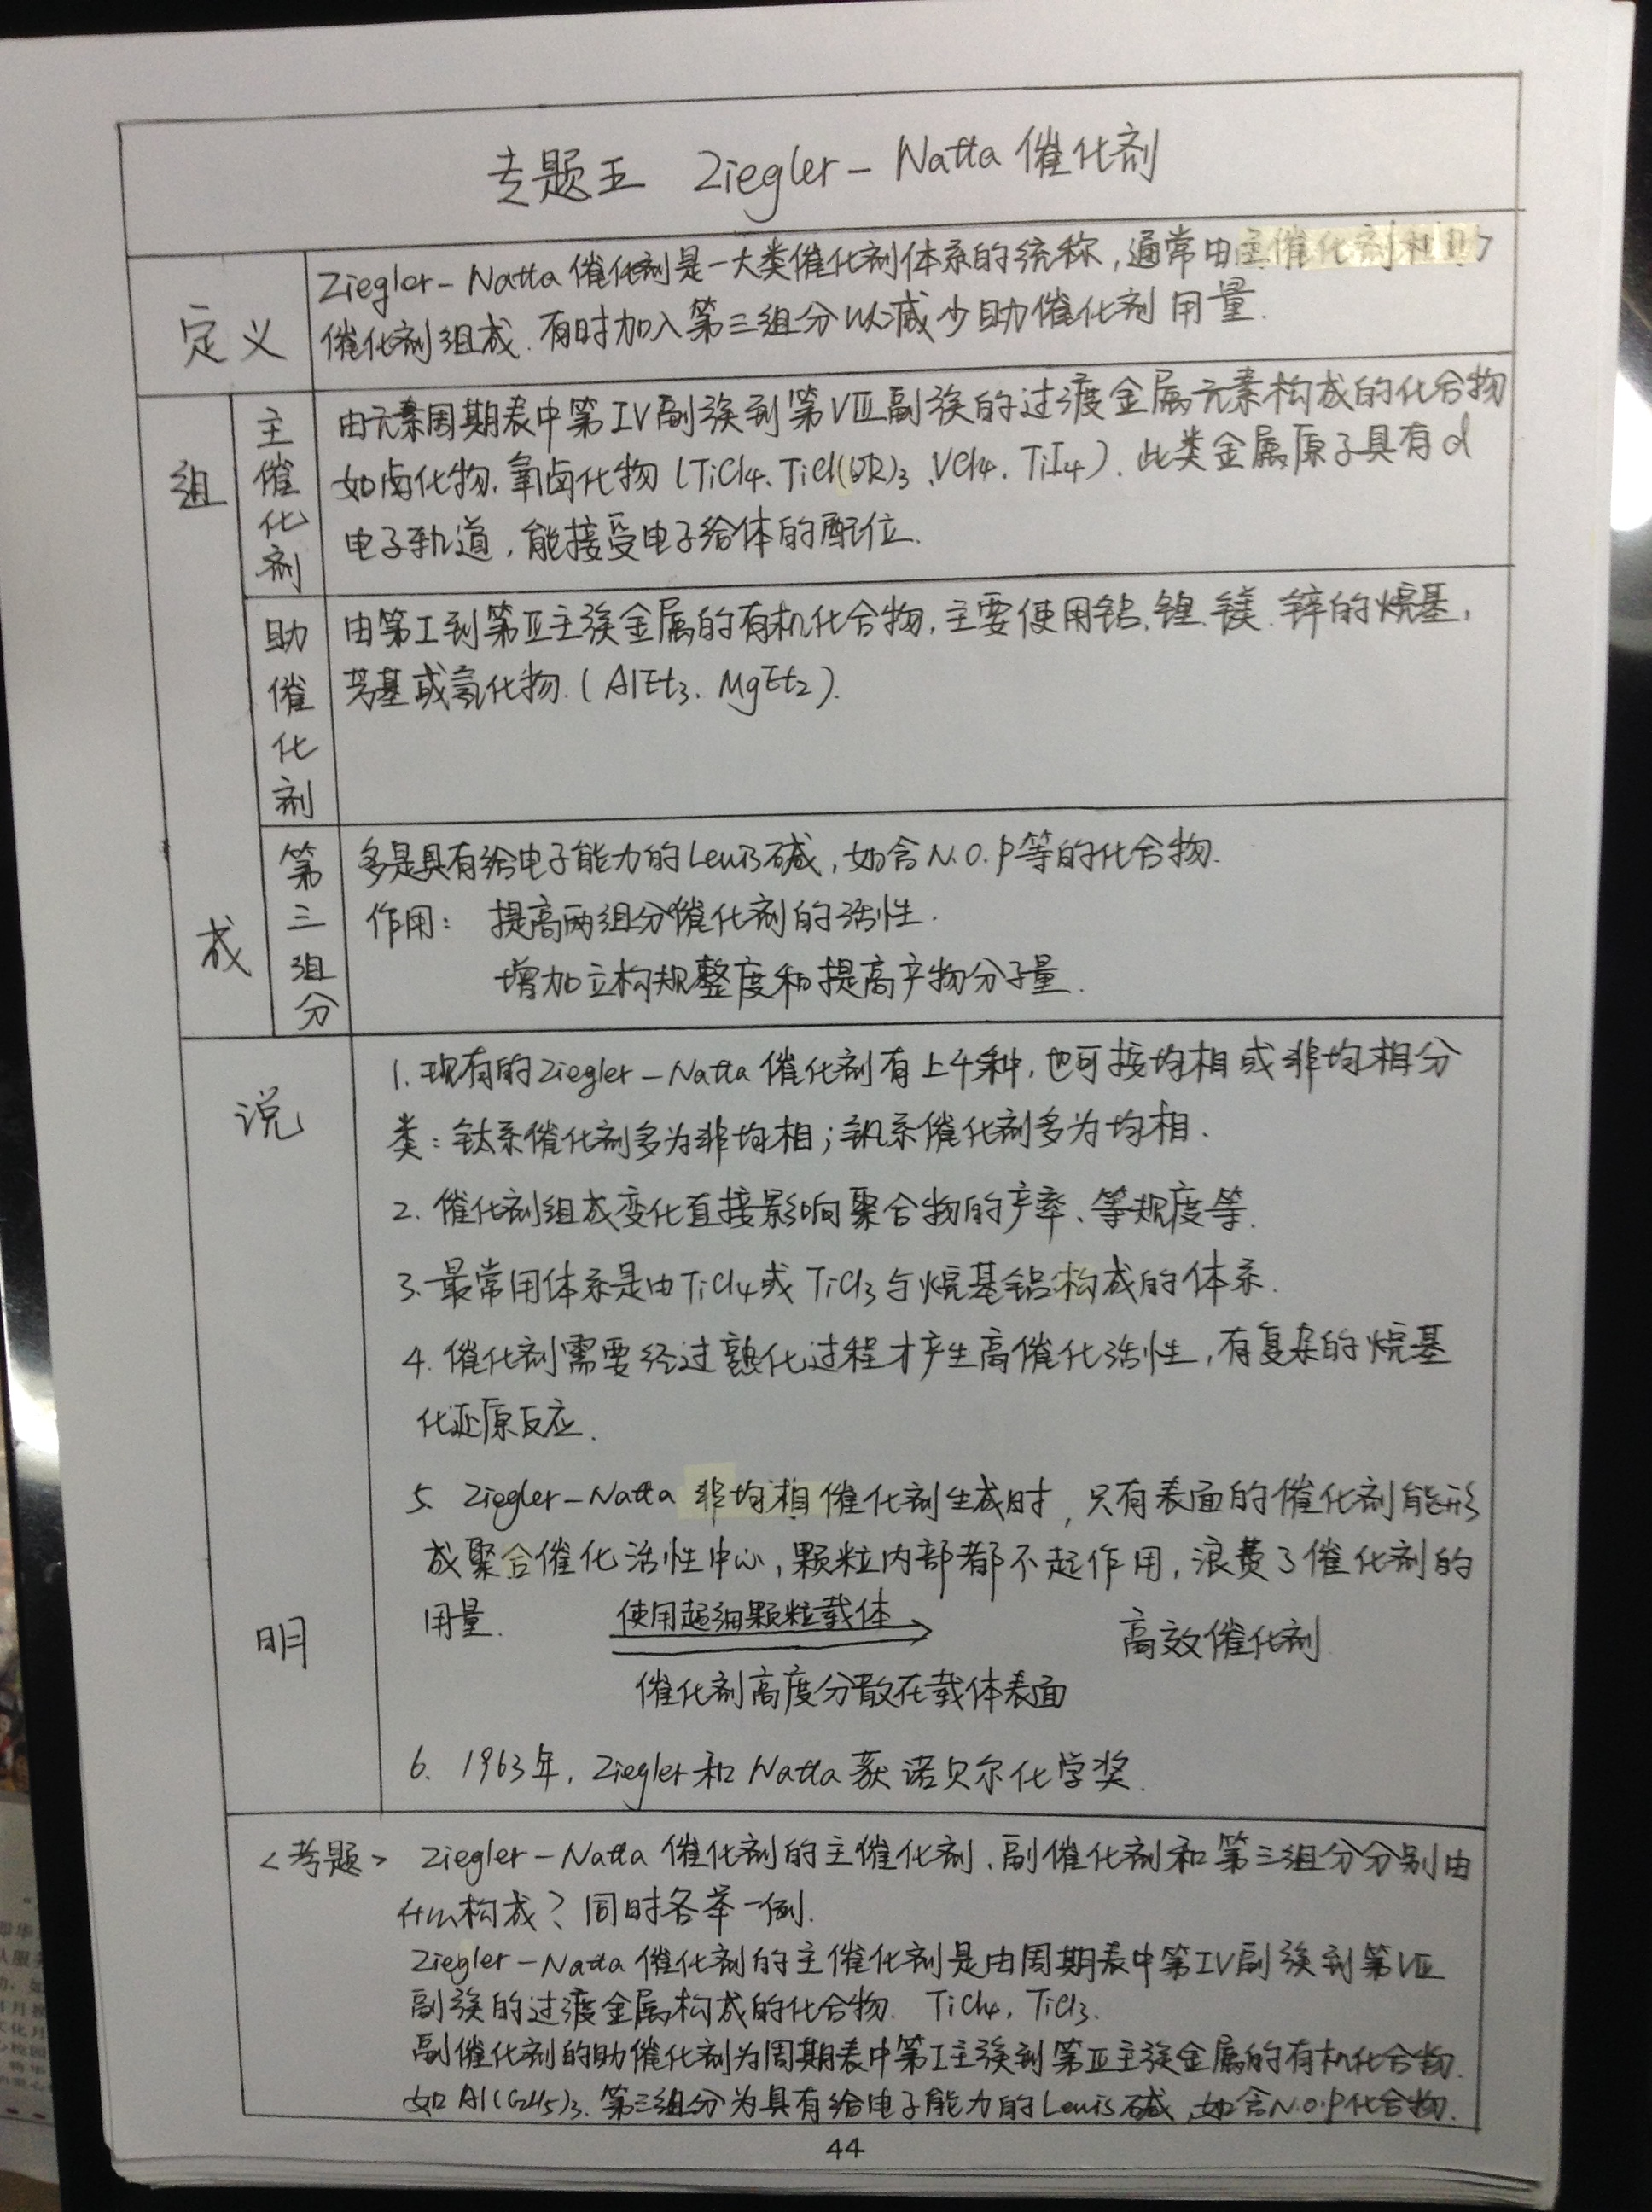 专题五 Ziegler-Natta 催化剂
定义
Ziegler-Natta 催化剂是一大类催化剂体系的统称,通常由主催化剂和助
催化剂组成.有时加入第三组分以减少助催化剂用量.
组成
主催化剂
由元素周期表中第IV副族到第VIII副族的过渡金属元素构成的化合物
如卤化物.氧卤化物(TiCl4、TiCl(OR)3、VCl4、TiI4).此类金属原子具有d
电子轨道,能接受电子给体的配位.
助催化剂
由第I到第III主族金属的有机化合物,主要使用铝.锂.镁.锌的烷基,
芳基或氢化物.(AlEt3、MgEt2).
第三组分
多是具有给电子能力的Lewis碱,如含N.O.P等的化合物.
作用: 提高两组分催化剂的活性.
增加立构规整度和提高产物分子量.
说明
1.现有的Ziegler-Natta催化剂有上千种,也可按均相或非均相分
类:钛系催化剂多为非均相;钒系催化剂多为均相.
2.催化剂组成变化直接影响聚合物的产率、等规度等.
3.最常用体系是由TiCl4或TiCl3与烷基铝构成的体系.
4.催化剂需要经过熟化过程才产生高催化活性,有复杂的烷基
化还原反应.
5. Ziegler-Natta 非均相催化剂生成时,只有表面的催化剂能形
成聚合催化活性中心,颗粒内部都不起作用,浪费了催化剂的
用量. 使用超细颗粒载体 高效催化剂
催化剂高度分散在载体表面
6. 1963年,Ziegler和Natta获诺贝尔化学奖.
<考题> Ziegler-Natta 催化剂的主催化剂、副催化剂和第三组分分别由
什么构成?同时各举一例.
Ziegler-Natta 催化剂的主催化剂是由周期表中第IV副族到第VIII
副族的过渡金属构成的化合物. TiCl4, TiCl3.
副催化剂的助催化剂为周期表中第I主族到第III主族金属的有机化合物.
如Al(C2H5)3.第三组分为具有给电子能力的Lewis碱,如含N.O.P化合物.
44